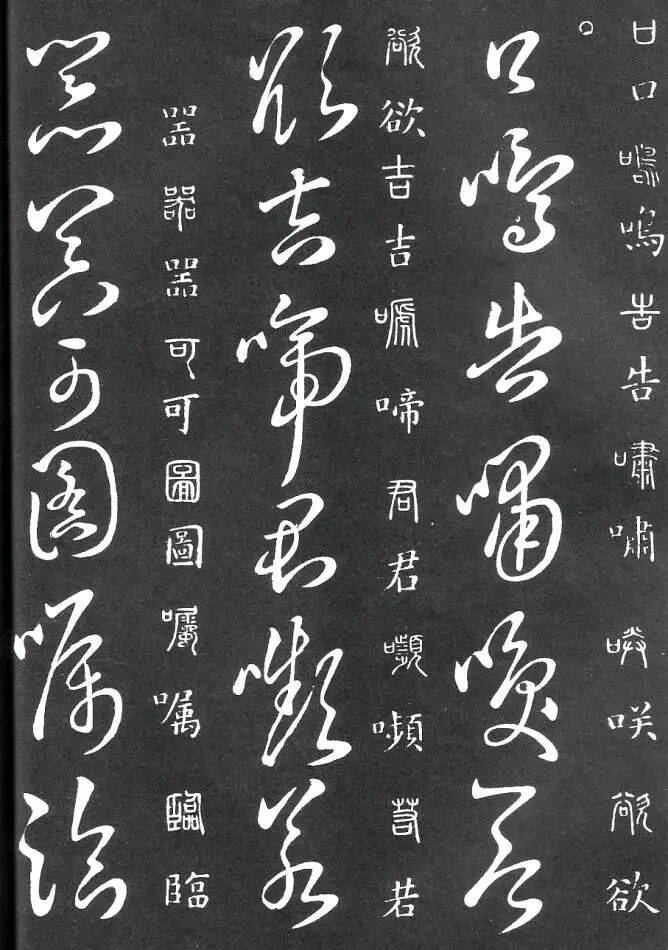 口口嗚嗚告告嘯嘯咲咲欲欲
口嗚告嘯咲
欲欲吉吉嗁啼君君嚬嚬若若
欲吉啼君嚬若
器器器可可圖圖囑嘱臨臨
器器可圖嘱臨